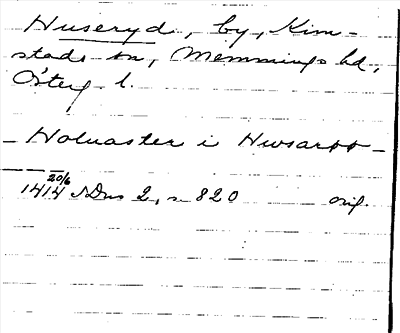 Huseryd, by, Kim-
stads sn, Memmings hd,
Österg. l.
Holuaster i Hwsaryø
20/6
1414 SDns 2, n 820 orig.